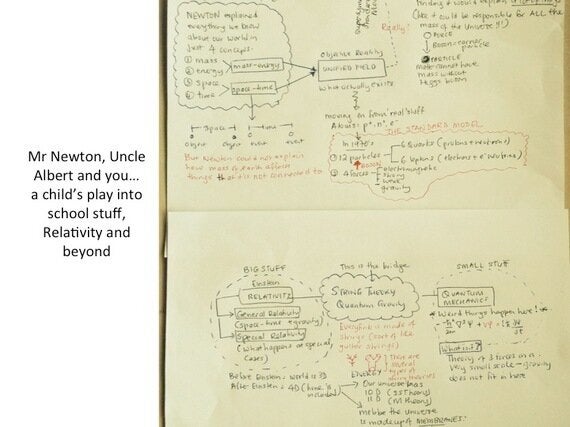 Mr Newton, Uncle
Albert and you...
a child's play into
school stuff,
Relativity and
beyond
NEWTON explained
everything we know
about our world in
just 4 concepts.
① mass
② energy
mass-energy
③ space
④ time
space-time
Objective Reality
UNIFIED FIELD
What actually exists
Really?
(like it could be responsible for ALL the
mass of the Universe!!)
FORCE
Boson-carrier
particle
PARTICLE
cannot have
mass without
Higgs boson
space
time
object
object
event
event
But Newton could not explain
how mass on earth affects
things that it's not connected to
moving on from 'real' stuff
Atoms: p⁺, n, e⁻
THE STANDARD MODEL
In 1970's
① 12 particles
6 Quarks (protons + neutrons)
6 leptons (electrons + e⁻ neutrino)
BOSON
② 4 forces
electromagnetic
strong
weak
gravity
BIG STUFF
Einstein
RELATIVITY
General Relativity
(space-time + gravity)
Special Relativity
(What happens at special
cases)
Before Einstein = world is 3D
After Einstein = 4D (time is
included)
This is the bridge
STRING THEORY
Quantum Gravity
Everything is made of
strings (sort of like
guitar strings)
There are
several
types of
string theories
ENERGY
Our universe has
10 D (SS Theory)
11 D (M Theory)
maybe the Universe
is made up of MEMBRANES!
SMALL STUFF
QUANTUM
MECHANICS
* Weird things happen here! *
What is it?
Theory of 3 forces on a
very small scale - gravity
does not fit in here